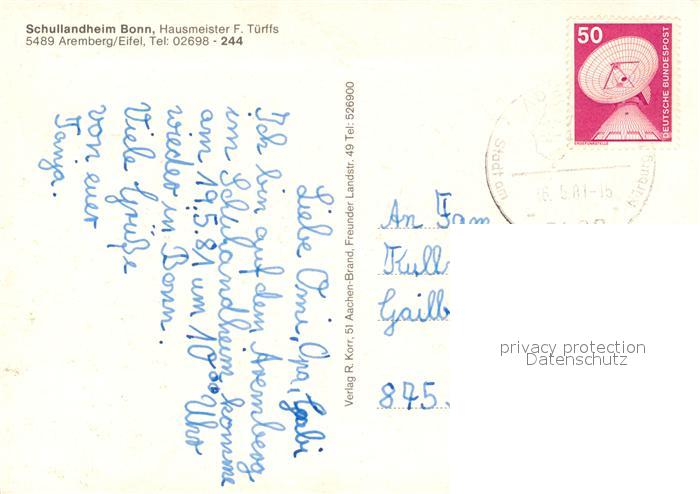 Schullandheim Bonn, Hausmeister F. Türffs
5489 Aremberg/Eifel, Tel: 02698 - 244
50
DEUTSCHE BUNDESPOST
ERDEFUNKSTELLE
Stadt am
Nürburg
16.5.81-15
Liebe Omi, Opa, Gabi
Ich bin auf dem Aremberg
im Schulandheim, komme
am 19.5.81 um 10 00 Uhr
wieder in Bonn.
Viele Grüße
von euer
Tanja.
Verlag R. Korr, 51 Aachen-Brand, Freunder Landstr. 49 Tel: 526900
An Fam
Kull
Gailb
875.
privacy protection
Datenschutz